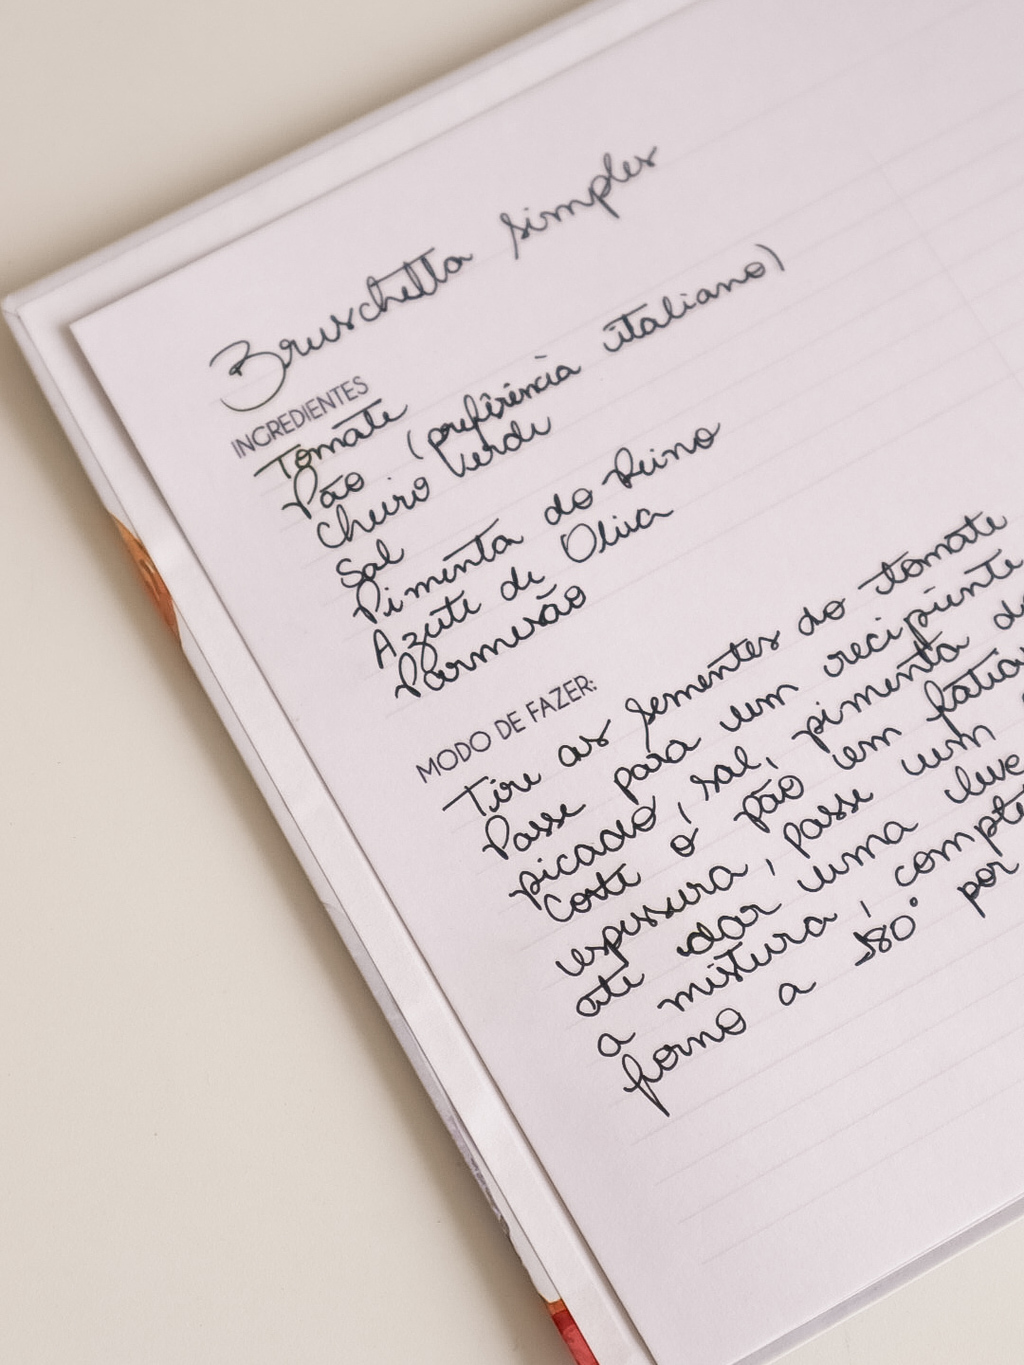 Bruschetta simples
INGREDIENTES
Tomate
Pão (preferência italiano)
Cheiro Verde
Sal
Pimenta do Reino
Azeite de Oliva
Parmesão
MODO DE FAZER:
Tire as sementes do tomate
Passe para um recipiente
picado, sal, pimenta do
Corte o pão em fatias
espessura, passe um
até dar uma leve
a mistura, complete
forno a 180° por